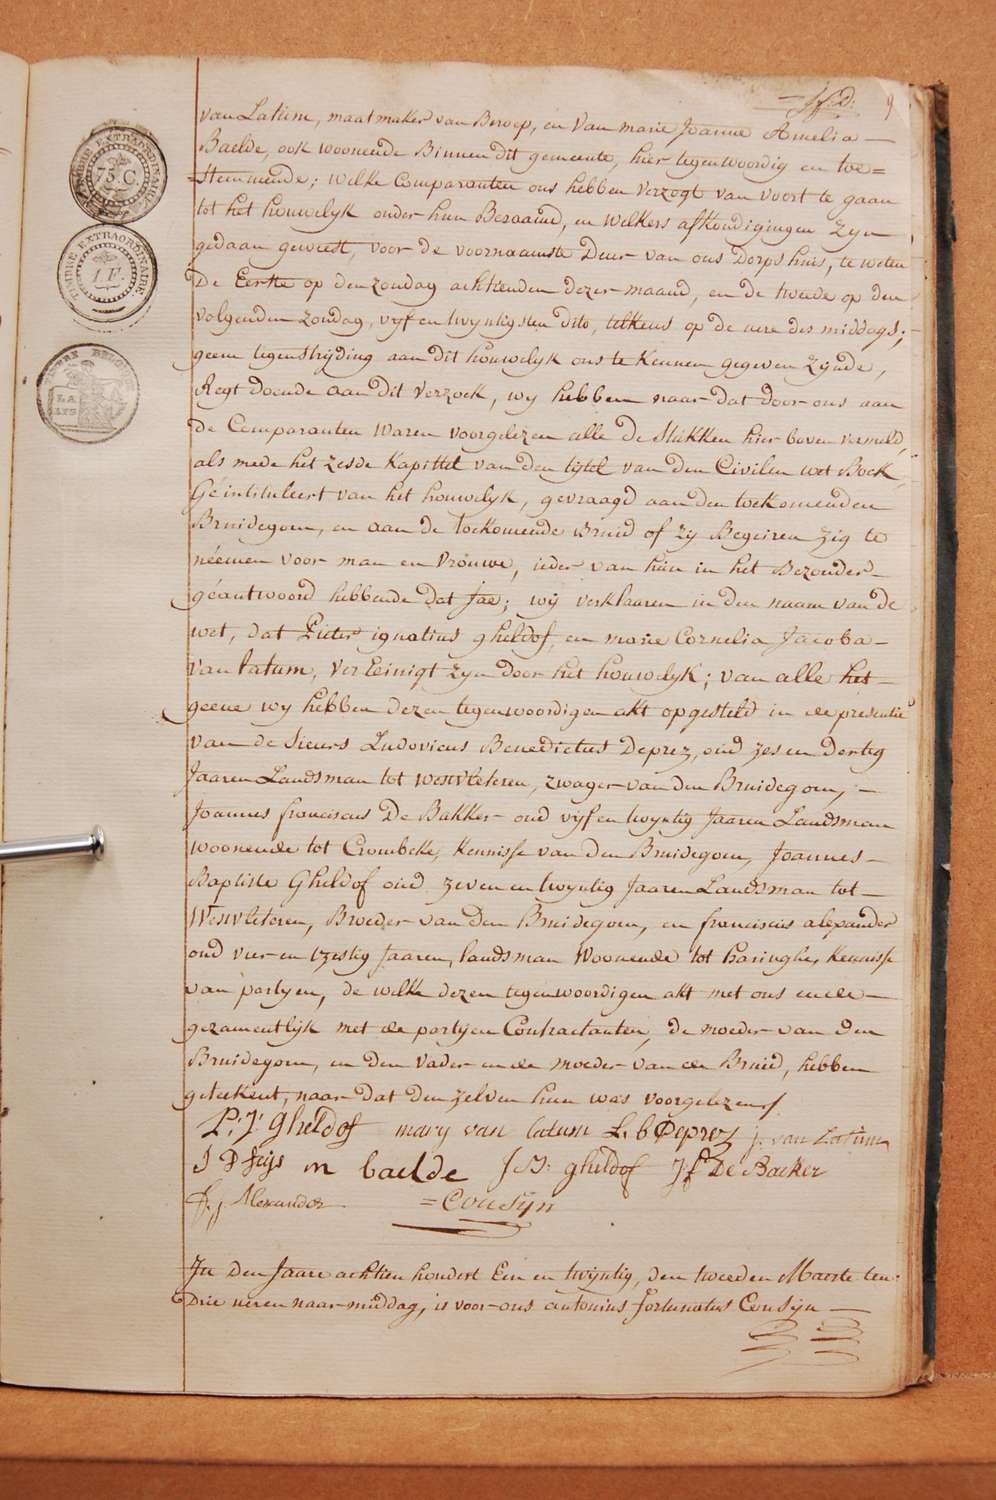 9
TIMBRE EXTRAORDINAIRE
75 C.
TIMBRE EXTRAORDINAIRE
1 F.
van Latum, maatmaker van Beroep, en van marie Joanne Amelia —
Baelde, ook woonende Binnen dit gemeente, hier tegenwoordig en toe=
=stemmende; welke Comparanten ons hebben verzogt van voort te gaan
tot het houwelyk onder hun Beraamd, en welkers afkondigingen zyn
gedaan geweest, voor de voornaamste Deur van ons Dorpshuis, te weten
De Eerste op den zondag achtienden dezer maand, en de tweede op den
volgenden zondag, vyf en twyntigsten dito, telkens op de ure des middags;
geene tegenstryding aan dit houwelyk ons te kennen gegeven zynde,
Regt doende aan dit verzoek, wy hebben naar dat door ons aan
de Comparanten waren voorgelezen alle de Stukken hier boven vermeld
als mede het zesde Kapittel van den tytel van den Civilen wet Boek,
Geintituleert van het houwelyk, gevraagd aan den toekomenden
Bruidegom, en aan de toekomende Bruid of zy Begeiren zig te
néemen voor man en Vrouwe, ieder van hun in het Bezonder
géantwoord hebbende dat Jae; wy verklaaren in den naam van de
wet, dat Pieter ignatius gheldof, en marie Cornelia Jacoba —
van latum, Vereinigt zyn door het houwelyk; van alle het —
geene wy hebben dezen tegenwoordigen akt opgesteld in de presentie
van de Sieurs Ludovicus Benedictus Deprez, oud zes en dertig
Jaaren Landsman tot westvleteren, zwager van den Bruidegom, —
Joannes franciscus De Bakker oud vyf en twyntig Jaaren Landsman
woonende tot Crombeke, Kennisse van den Bruidegom, Joannes —
Baptiste Gheldof oud zeven en twyntig Jaaren Landsman tot —
Westvleteren, Broeder van den Bruidegom, en franciscus alexander
oud vier en tzestig Jaaren, landsman woonende tot haringhe, Kennisse
van partyen, de welke dezen tegenwoordigen akt met ons ende —
gezamentlyk met de partyen Contractanten, de moeder van den
Bruidegom, en den vader ende moeder van de Bruid, hebben
geteekent, naar dat den zelven hun was voorgelezen
P: J: Gheldof mary van latum L. b Deprez J. van Latum
J D feys m baelde J B: gheldof J f De Backer
f. J Alexander = Cousyn
In den Jaare achtien hondert Ein en twyntig, den tweeden Maerte ten
Drie uren naar middag, is voor ons antonius fortunatus Cousyn —